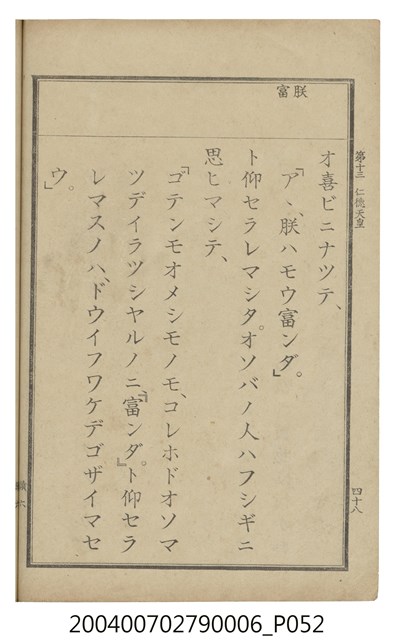 朕 富
第十三 仁德天皇
オ喜ビニナツテ、
「ア、朕ハモウ富ンダ。」
ト仰セラレマシタ。オソバノ人ハフシギニ
思ヒマシテ、
「ゴテンモオメシモノモ、コレホドオソマ
ツデイラツシヤルノニ、『富ンダ。』ト仰セラ
レマスノハ、ドウイフワケデゴザイマセ
ウ。」
四十八
200400702790006_P052